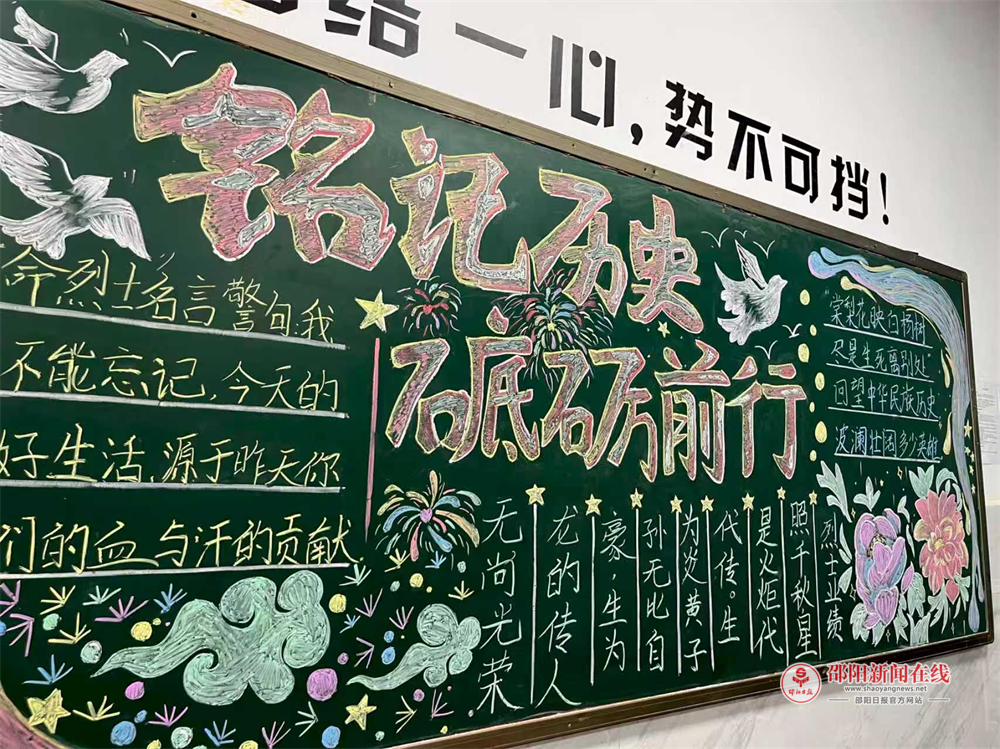 结一心，势不可挡！
铭记历史
砥砺前行
命烈士名言警句:我
不能忘记,今天的
好生活,源于昨天你
们的血与汗的贡献
"棠梨花映白杨树
尽是生死离别处"
回望中华民族历史
波澜壮阔多少英雄
烈士业绩
照千秋星
是火炬代
代传。生
为炎黄子
孙无比自
豪,生为
龙的传人
无尚光荣
邵阳新闻在线
www.shaoyangnews.net
邵阳日报官方网站
邵阳日报